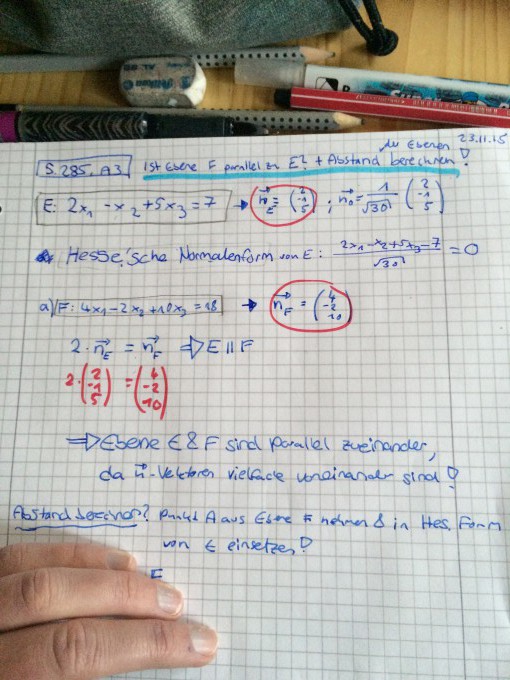 der Ebenen 23.11.15
S. 285, A3 Ist Ebene F parallel zu E? + Abstand berechnen!
E: 2x₁ - x₂ + 5x₃ = 7 → n⃗_E = (2 -1 5) ; n⃗₀ = 1/√30 (2 -1 5)
Hesse'sche Normalenform von E: (2x₁ - x₂ + 5x₃ - 7)/√30 = 0
a) F: 4x₁ - 2x₂ + 10x₃ = 18 → n⃗_F = (4 -2 10)
2 · n⃗_E = n⃗_F ⇒ E ∥ F
2 · (2 -1 5) = (4 -2 10)
⇒ Ebene E & F sind parallel zueinander,
da n⃗-Vektoren vielfache voneinander sind!
Abstand berechnen? Punkt A aus Ebene F nehmen & in Hes. Form
von E einsetzen!